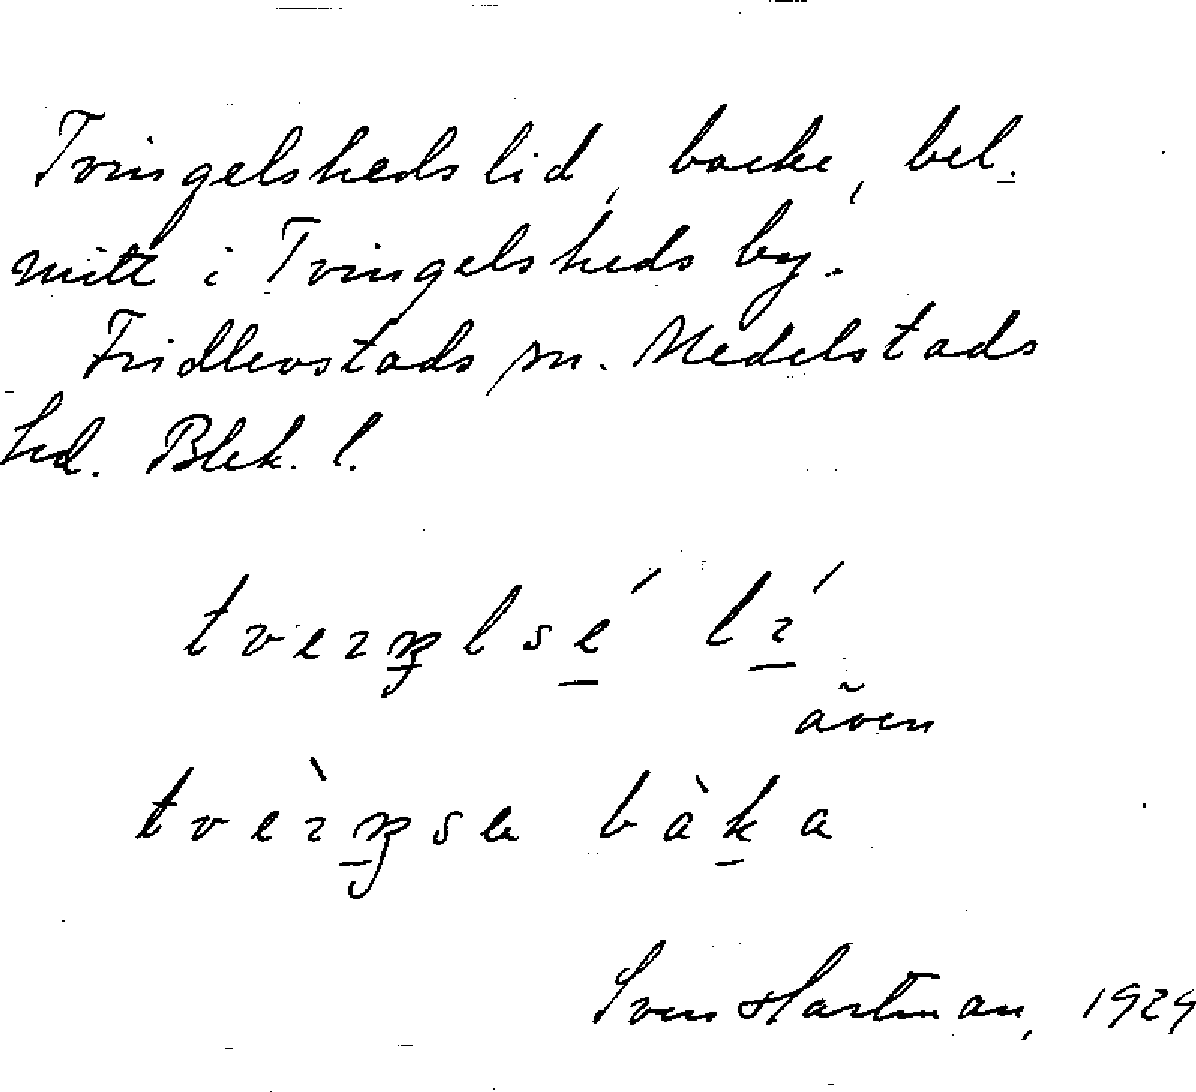 Tvingelshedslid, backe, bel.
mitt i Tvingelsheds by.
Fridlevstads sn. Medelstads
hd. Blek. l.
även
bàka
Sven Hartman, 1929